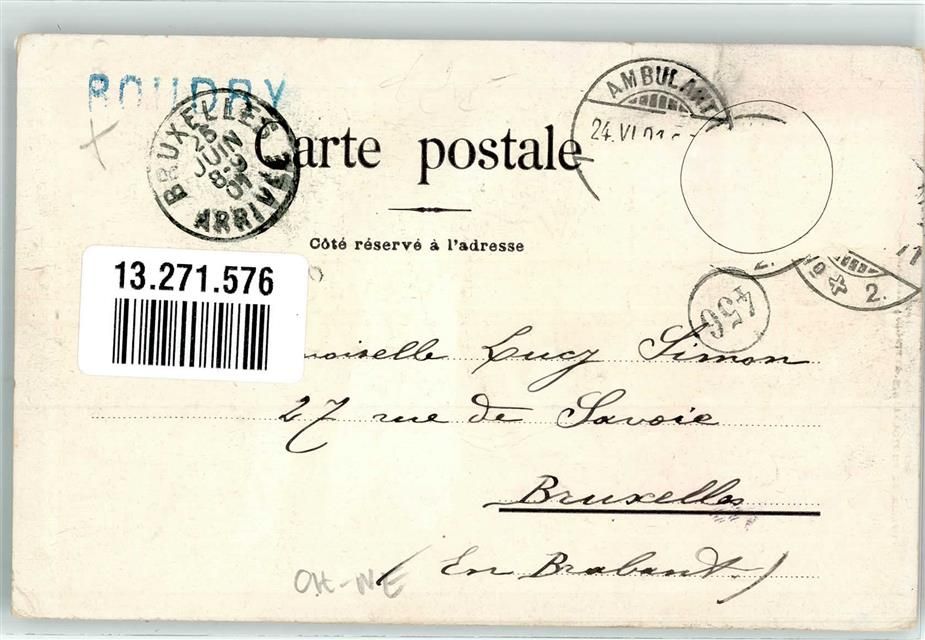 BOUDRY
BRUXELLES
25
JUIN
ARRIVÉE
AMBULANT
24.VI.01
Carte postale
Côté réservé à l'adresse
13.271.576
2.
2.
456
Lucy Simon
27 rue de Savoie
Bruxelles
(En Brabant)
CH-NE